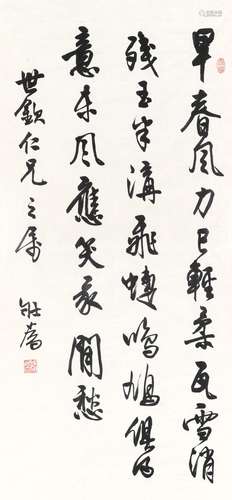 早春風力已輕柔瓦雪消
殘玉半溝飛蝶鳴鳩俱得
意東風應笑我閒愁
世欽仁兄之屬
壯為